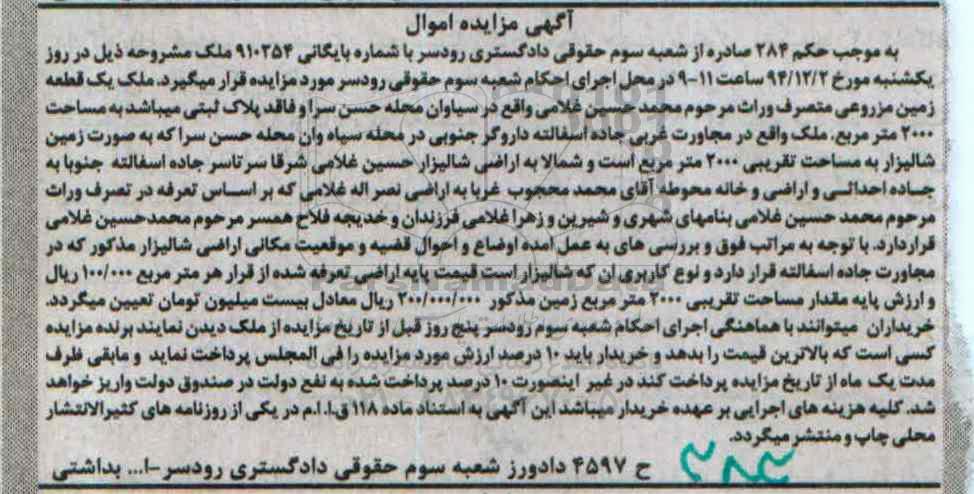 آگهی مزایده اموال
به موجب حکم ۲۸۴ صادره از شعبه سوم حقوقی دادگستری رودسر با شماره بایگانی ۹۱۰۳۵۴ ملک مشروحه ذیل در روز
یکشنبه مورخ ۹۴/۱۲/۲ ساعت ۱۱-۹ در محل اجرای احکام شعبه سوم حقوقی رودسر مورد مزایده قرار میگیرد. ملک یک قطعه
زمین مزروعی متصرف وراث مرحوم محمد حسین غلامی واقع در سیاوان محله حسن سرا و فاقد پلاک ثبتی میباشد به مساحت
۲۰۰۰ متر مربع. ملک واقع در مجاورت غربی جاده اسفالته داروگر جنوبی در محله سیاه وان محله حسن سرا که به صورت زمین
شالیزار به مساحت تقریبی ۲۰۰۰ متر مربع است و شمالا به اراضی شالیزار حسین غلامی شرقا سرتاسر جاده اسفالته جنوبا به
جاده احداثی و اراضی و خانه محوطه آقای محمد محجوب غربا به اراضی نصر اله غلامی که بر اساس تعرفه در تصرف وراث
مرحوم محمد حسین غلامی بنامهای شهری و شیرین و زهرا غلامی فرزندان و خدیجه فلاح همسر مرحوم محمدحسین غلامی
قراردارد. با توجه به مراتب فوق و بررسی های به عمل امده اوضاع و احوال قضیه و موقعیت مکانی اراضی شالیزار مذکور که در
مجاورت جاده اسفالته قرار دارد و نوع کاربری ان که شالیزار است قیمت پایه اراضی تعرفه شده از قرار هر متر مربع ۱۰۰/۰۰۰ ریال
و ارزش پایه مقدار مساحت تقریبی ۲۰۰۰ متر مربع زمین مذکور ۲۰۰/۰۰۰/۰۰۰ ریال معادل بیست میلیون تومان تعیین میگردد.
خریداران میتوانند با هماهنگی اجرای احکام شعبه سوم رودسر پنج روز قبل از تاریخ مزایده از ملک دیدن نمایند برنده مزایده
کسی است که بالاترین قیمت را بدهد و خریدار باید ۱۰ درصد ارزش مورد مزایده را فی المجلس پرداخت نماید و مابقی ظرف
مدت یک ماه از تاریخ مزایده پرداخت کند در غیر اینصورت ۱۰ درصد پرداخت شده به نفع دولت در صندوق دولت واریز خواهد
شد. کلیه هزینه های اجرایی بر عهده خریدار میباشد این آگهی به استناد ماده ۱۱۸ ق.ا.ا.م در یکی از روزنامه های کثیرالانتشار
محلی چاپ و منتشر میگردد.
ح ۴۵۹۷ دادورز شعبه سوم حقوقی دادگستری رودسر-ا... بداشتی